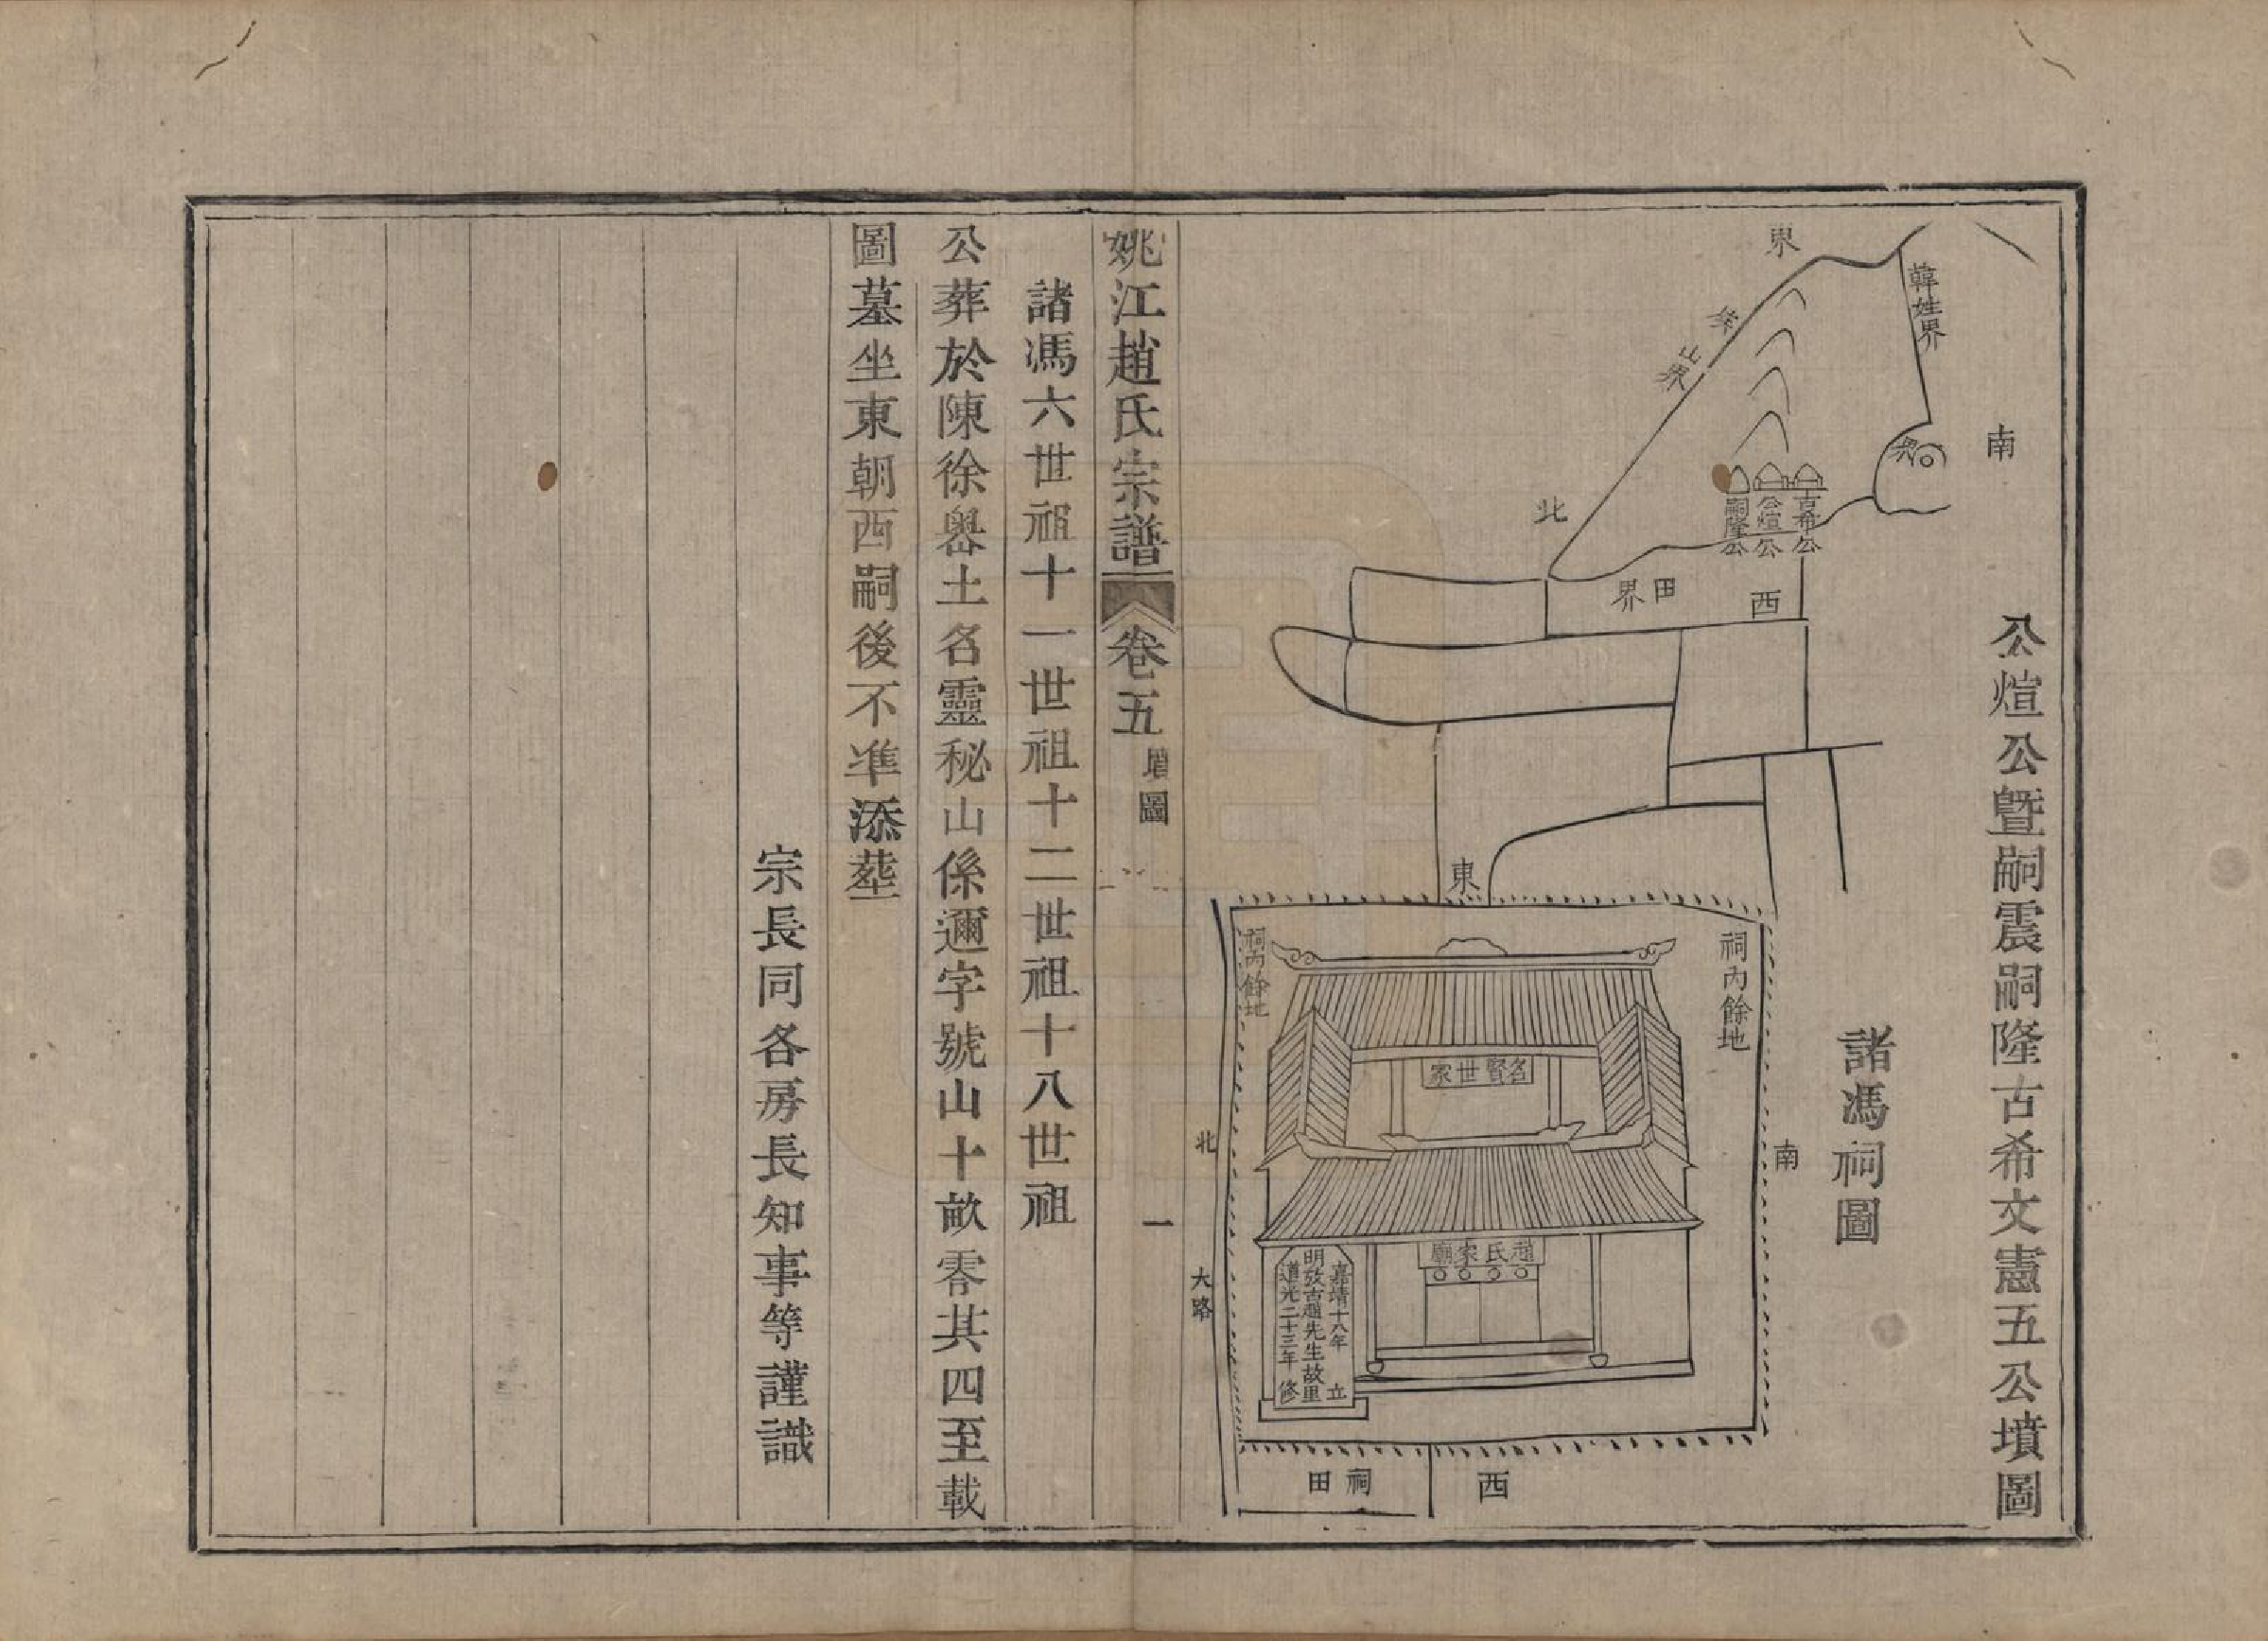 公煊公曁嗣震嗣隆古希文憲五公墳圖
諸馮祠圖
南
韓姓界
界
界
山界
北
古希公
公煊公
嗣隆公
西
田界
東
祠內餘地
祠內餘地
名賢世家
趙氏家廟
嘉靖十八年 立
明攷古趙先生故里
道光二十三年 修
南
北
大路
西
祠田
姚江趙氏宗譜 卷五 墳圖 一
諸馮六世祖十一世祖十二世祖十八世祖
公葬於陳徐嶴土名靈秘山係邇字號山十畝零其四至載
圖墓坐東朝西嗣後不準添塟
宗長同各房長知事等謹識